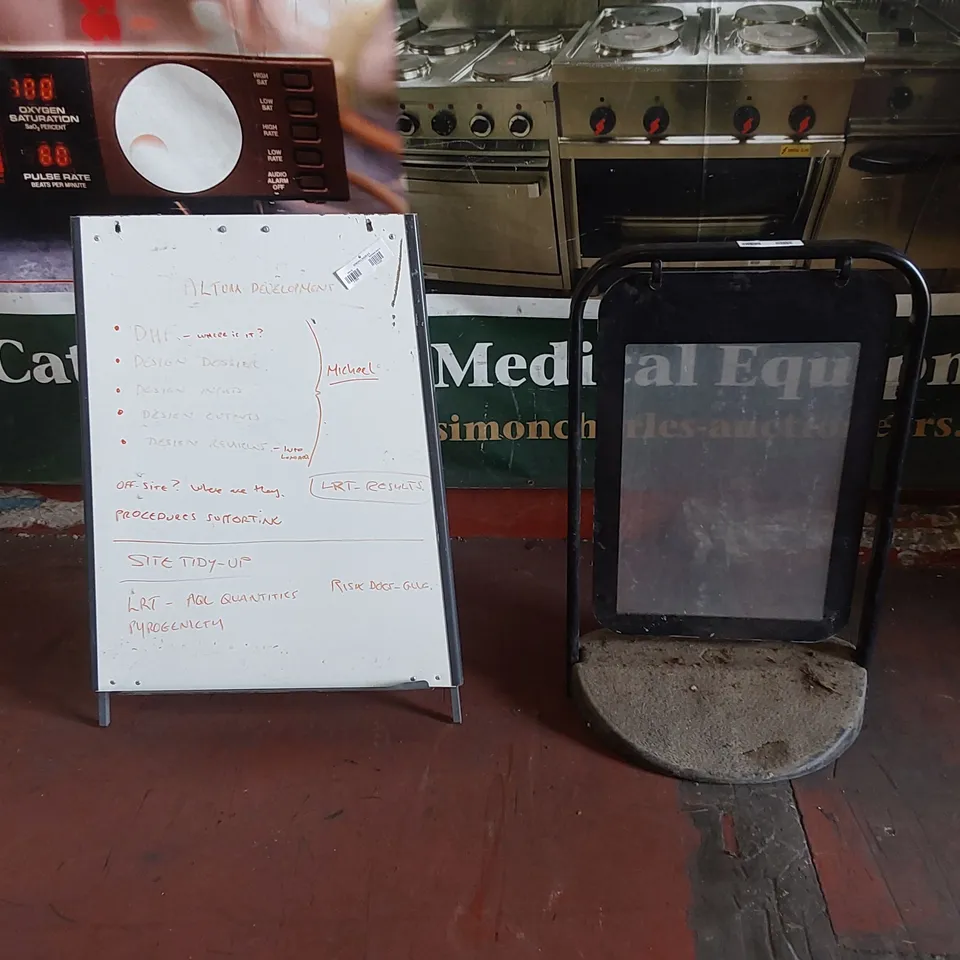 OXYGEN
SATURATION
SaO₂ PERCENT
80
PULSE RATE
BEATS PER MINUTE
HIGH
SAT
LOW
SAT
HIGH
RATE
LOW
RATE
AUDIO
ALARM
OFF
ALTUMA DEVELOPMENT
• DHF. - WHERE IS IT?
• DESIGN DOSSIER
• DESIGN
• DESIGN OUTPUTS
• DESIGN REVIEWS. - INTO
Michael
OFF-SITE? Where are they.
LRT - RESULTS.
PROCEDURES SUPPORTING
SITE TIDY-UP
RISK DOCS - GLUC.
LRT - AQL QUANTITIES
PYROGENICTY
Cat
Medical Equipm
simoncharles-auctioneers.